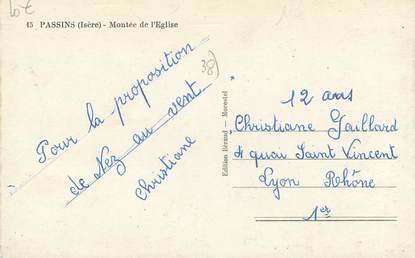 10 €
15 PASSINS (Isère) - Montée de l'Eglise
38)
Pour la proposition
de Nez au vent
Christiane
Edition Réraud — Morestel
12 ans
Christiane Gaillard
4 quai Saint Vincent
Lyon Rhône
1er